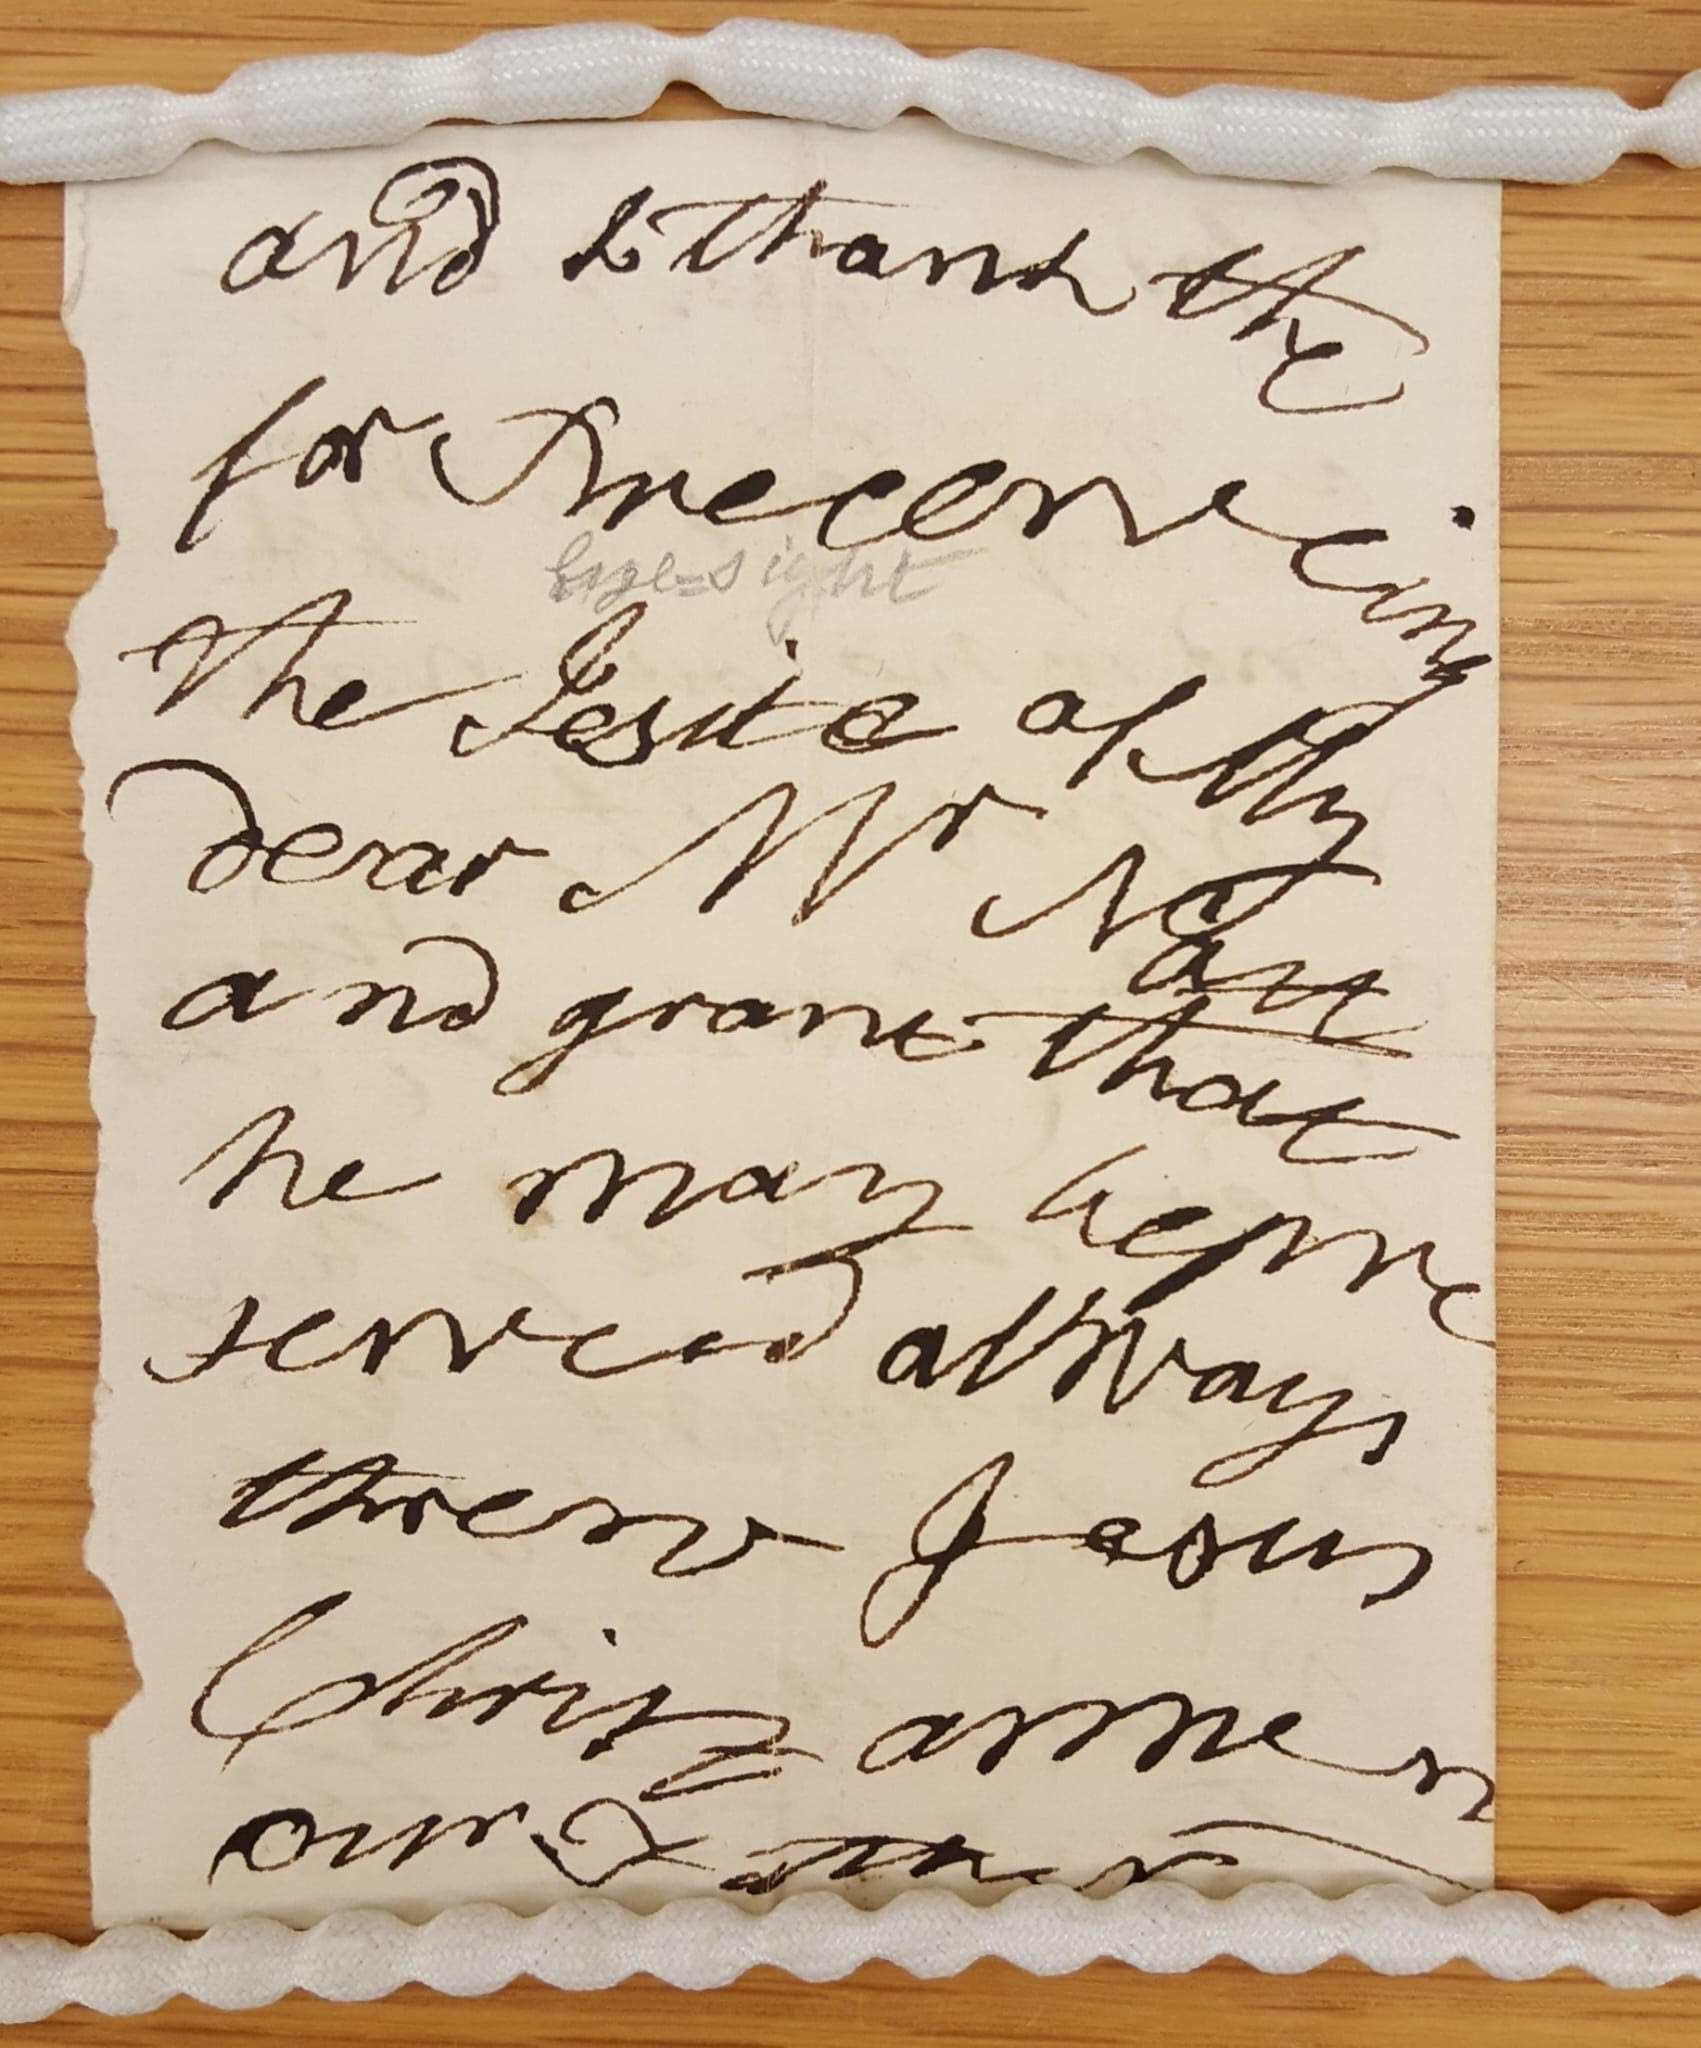 and I thank the
for preceerveing
eye-sight
the Iesite of My
dear Mr Nay
an
and grant that
he may bepre
serveed allways
threw Jesus
Christ armen
our Father